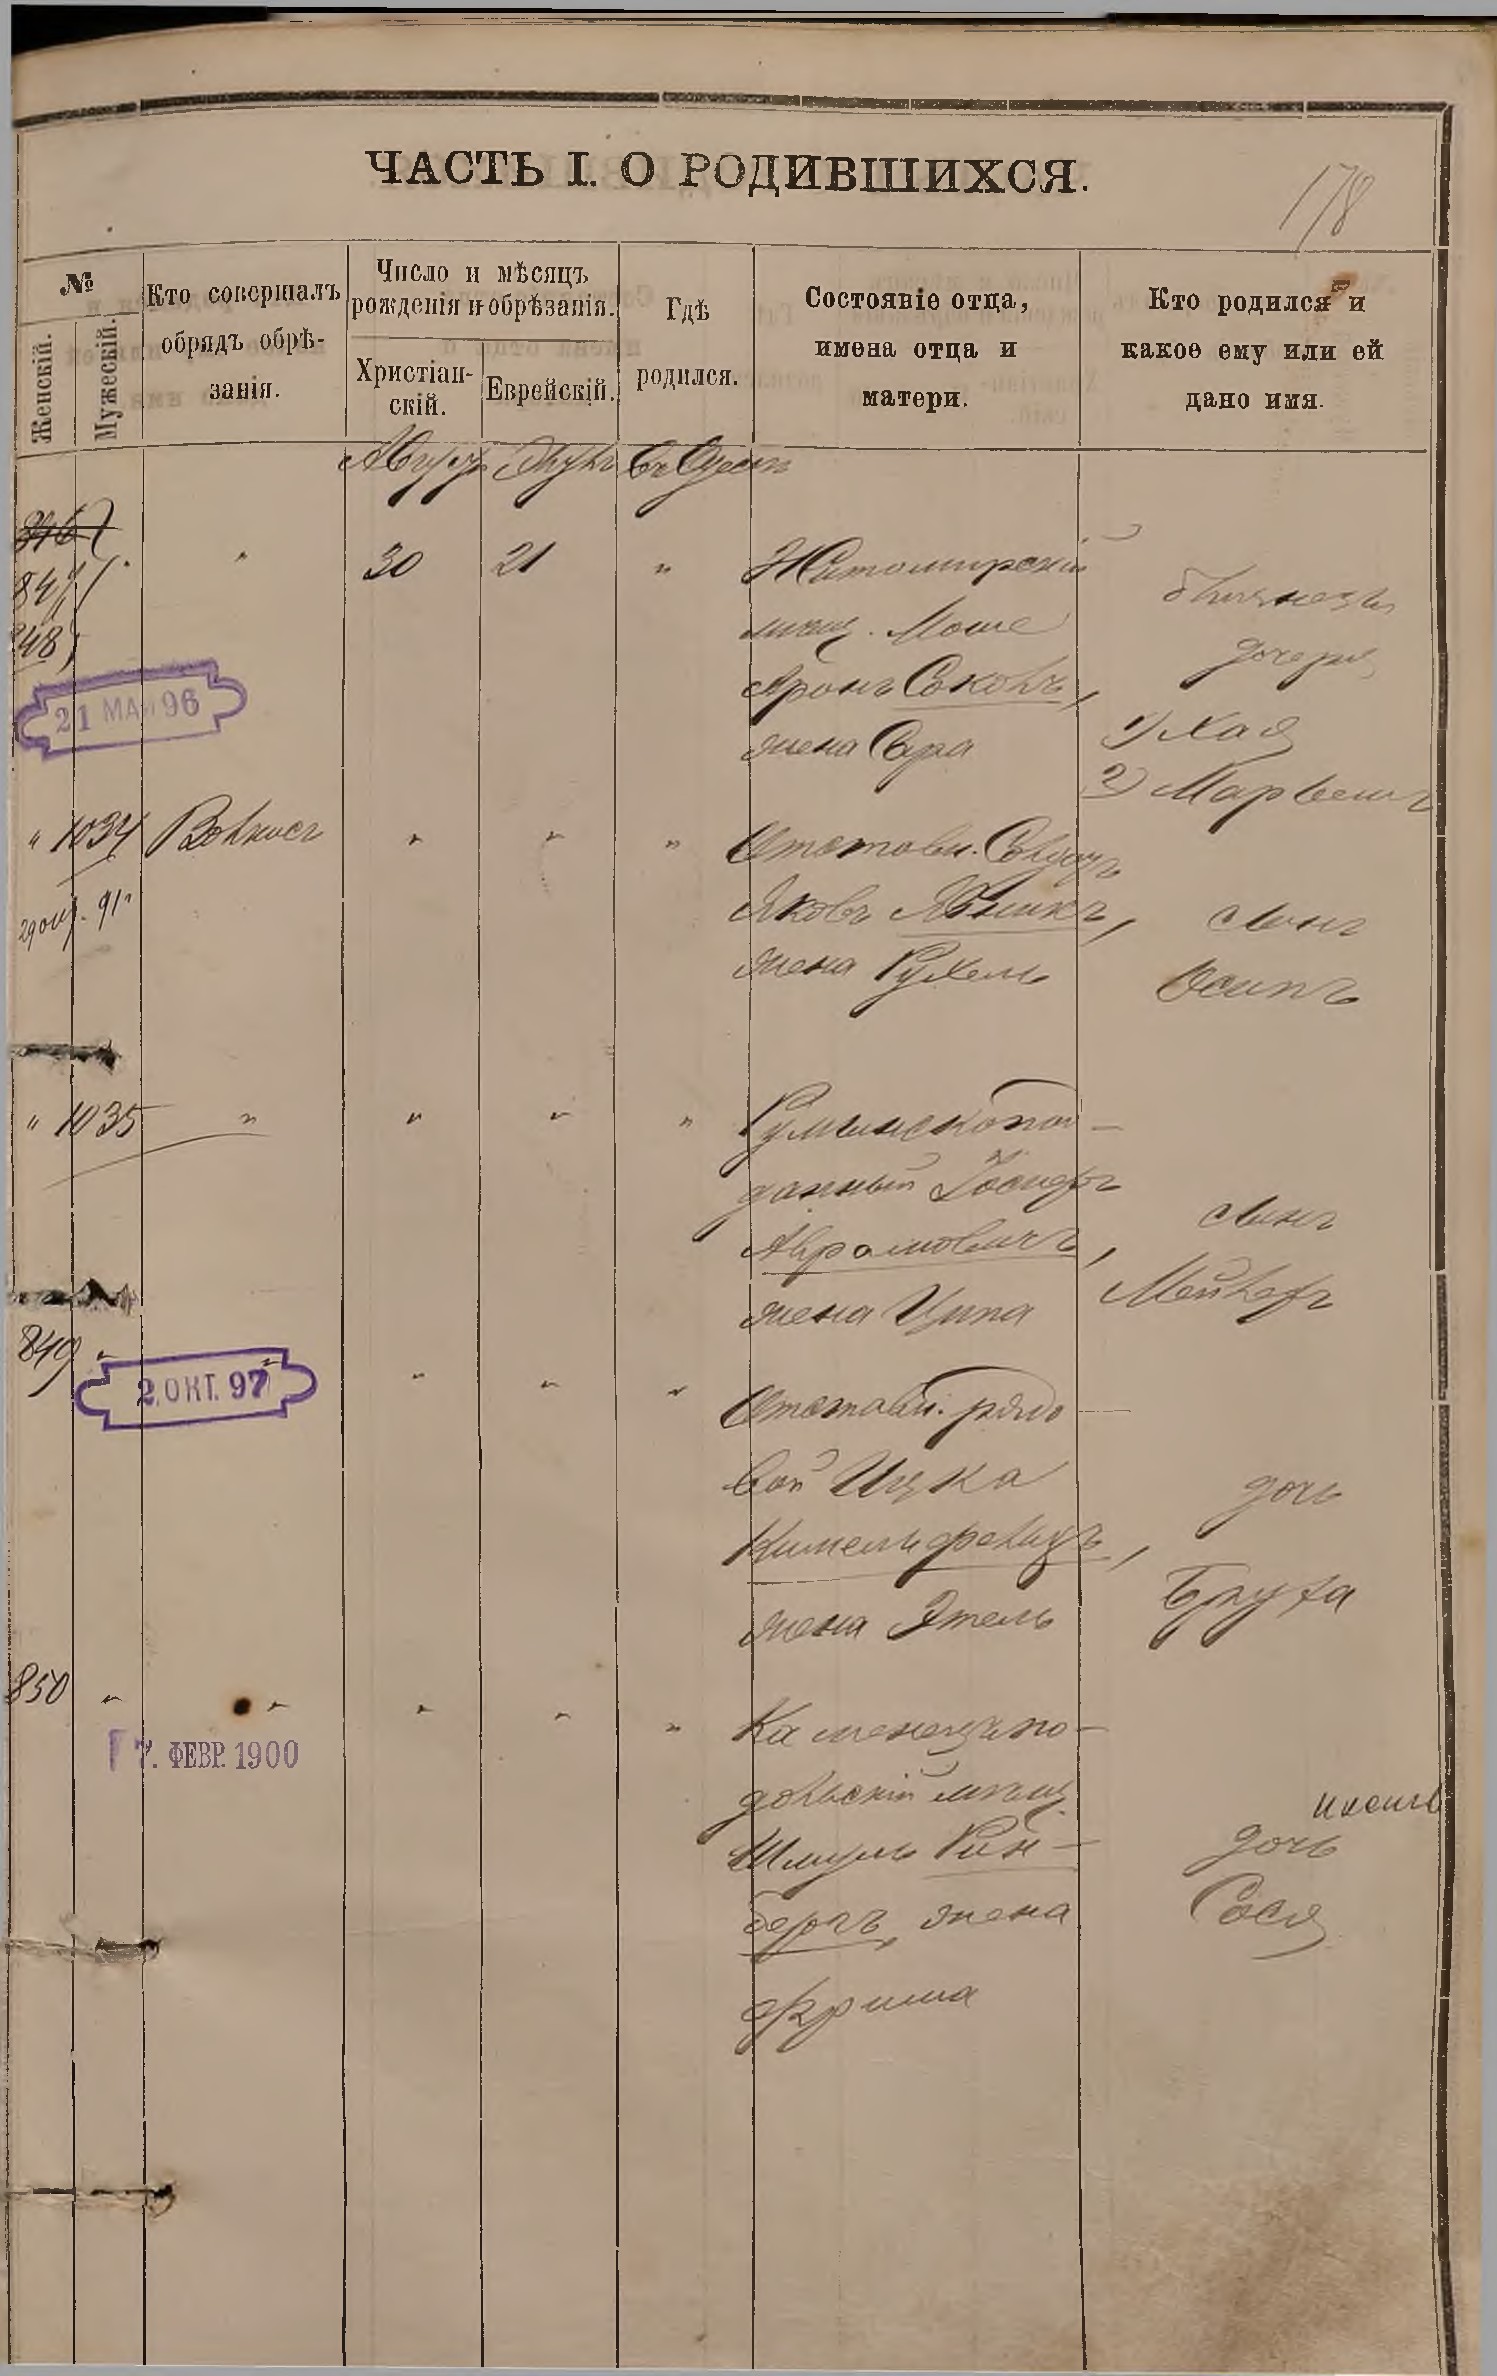 ЧАСТЬ I. О РОДИВШИХСЯ.
178
№
Женскій.
Мужескій.
Кто совершалъ
обрядъ обрѣ-
занія.
Число и мѣсяцъ
рожденія и обрѣзанія.
Христіан-
скій.
Еврейскій.
Гдѣ
родился.
Состояніе отца,
имена отца и
матери.
Кто родился и
какое ему или ей
дано имя.
Август Элулъ въ Одессѣ
846
847
848
21 МАЯ 96
" 30 21 "
Житомирскій
мѣщ. Моше
Аронъ Соколъ,
жена Сара
близнецы
дочери
1) Хая
2)
" 1034 " " "
29 91
Отставн. Солдатъ
Яковъ
жена Рухель
сынъ
Осипъ
" 1035 " " " "
Румынскопод-
данный Іосифъ
Абрамовичъ,
жена Ципа
сынъ
849 " " " " "
2. ОКТ. 97
Отставн. рядо-
вой Ицка
жена Этель
дочь
Бруха
850 " " " " "
7. ФЕВР. 1900
Каменецъ по-
дольскій мѣщ.
Шмуль Рин-
бергъ, жена
Фрима
дочь
Сося